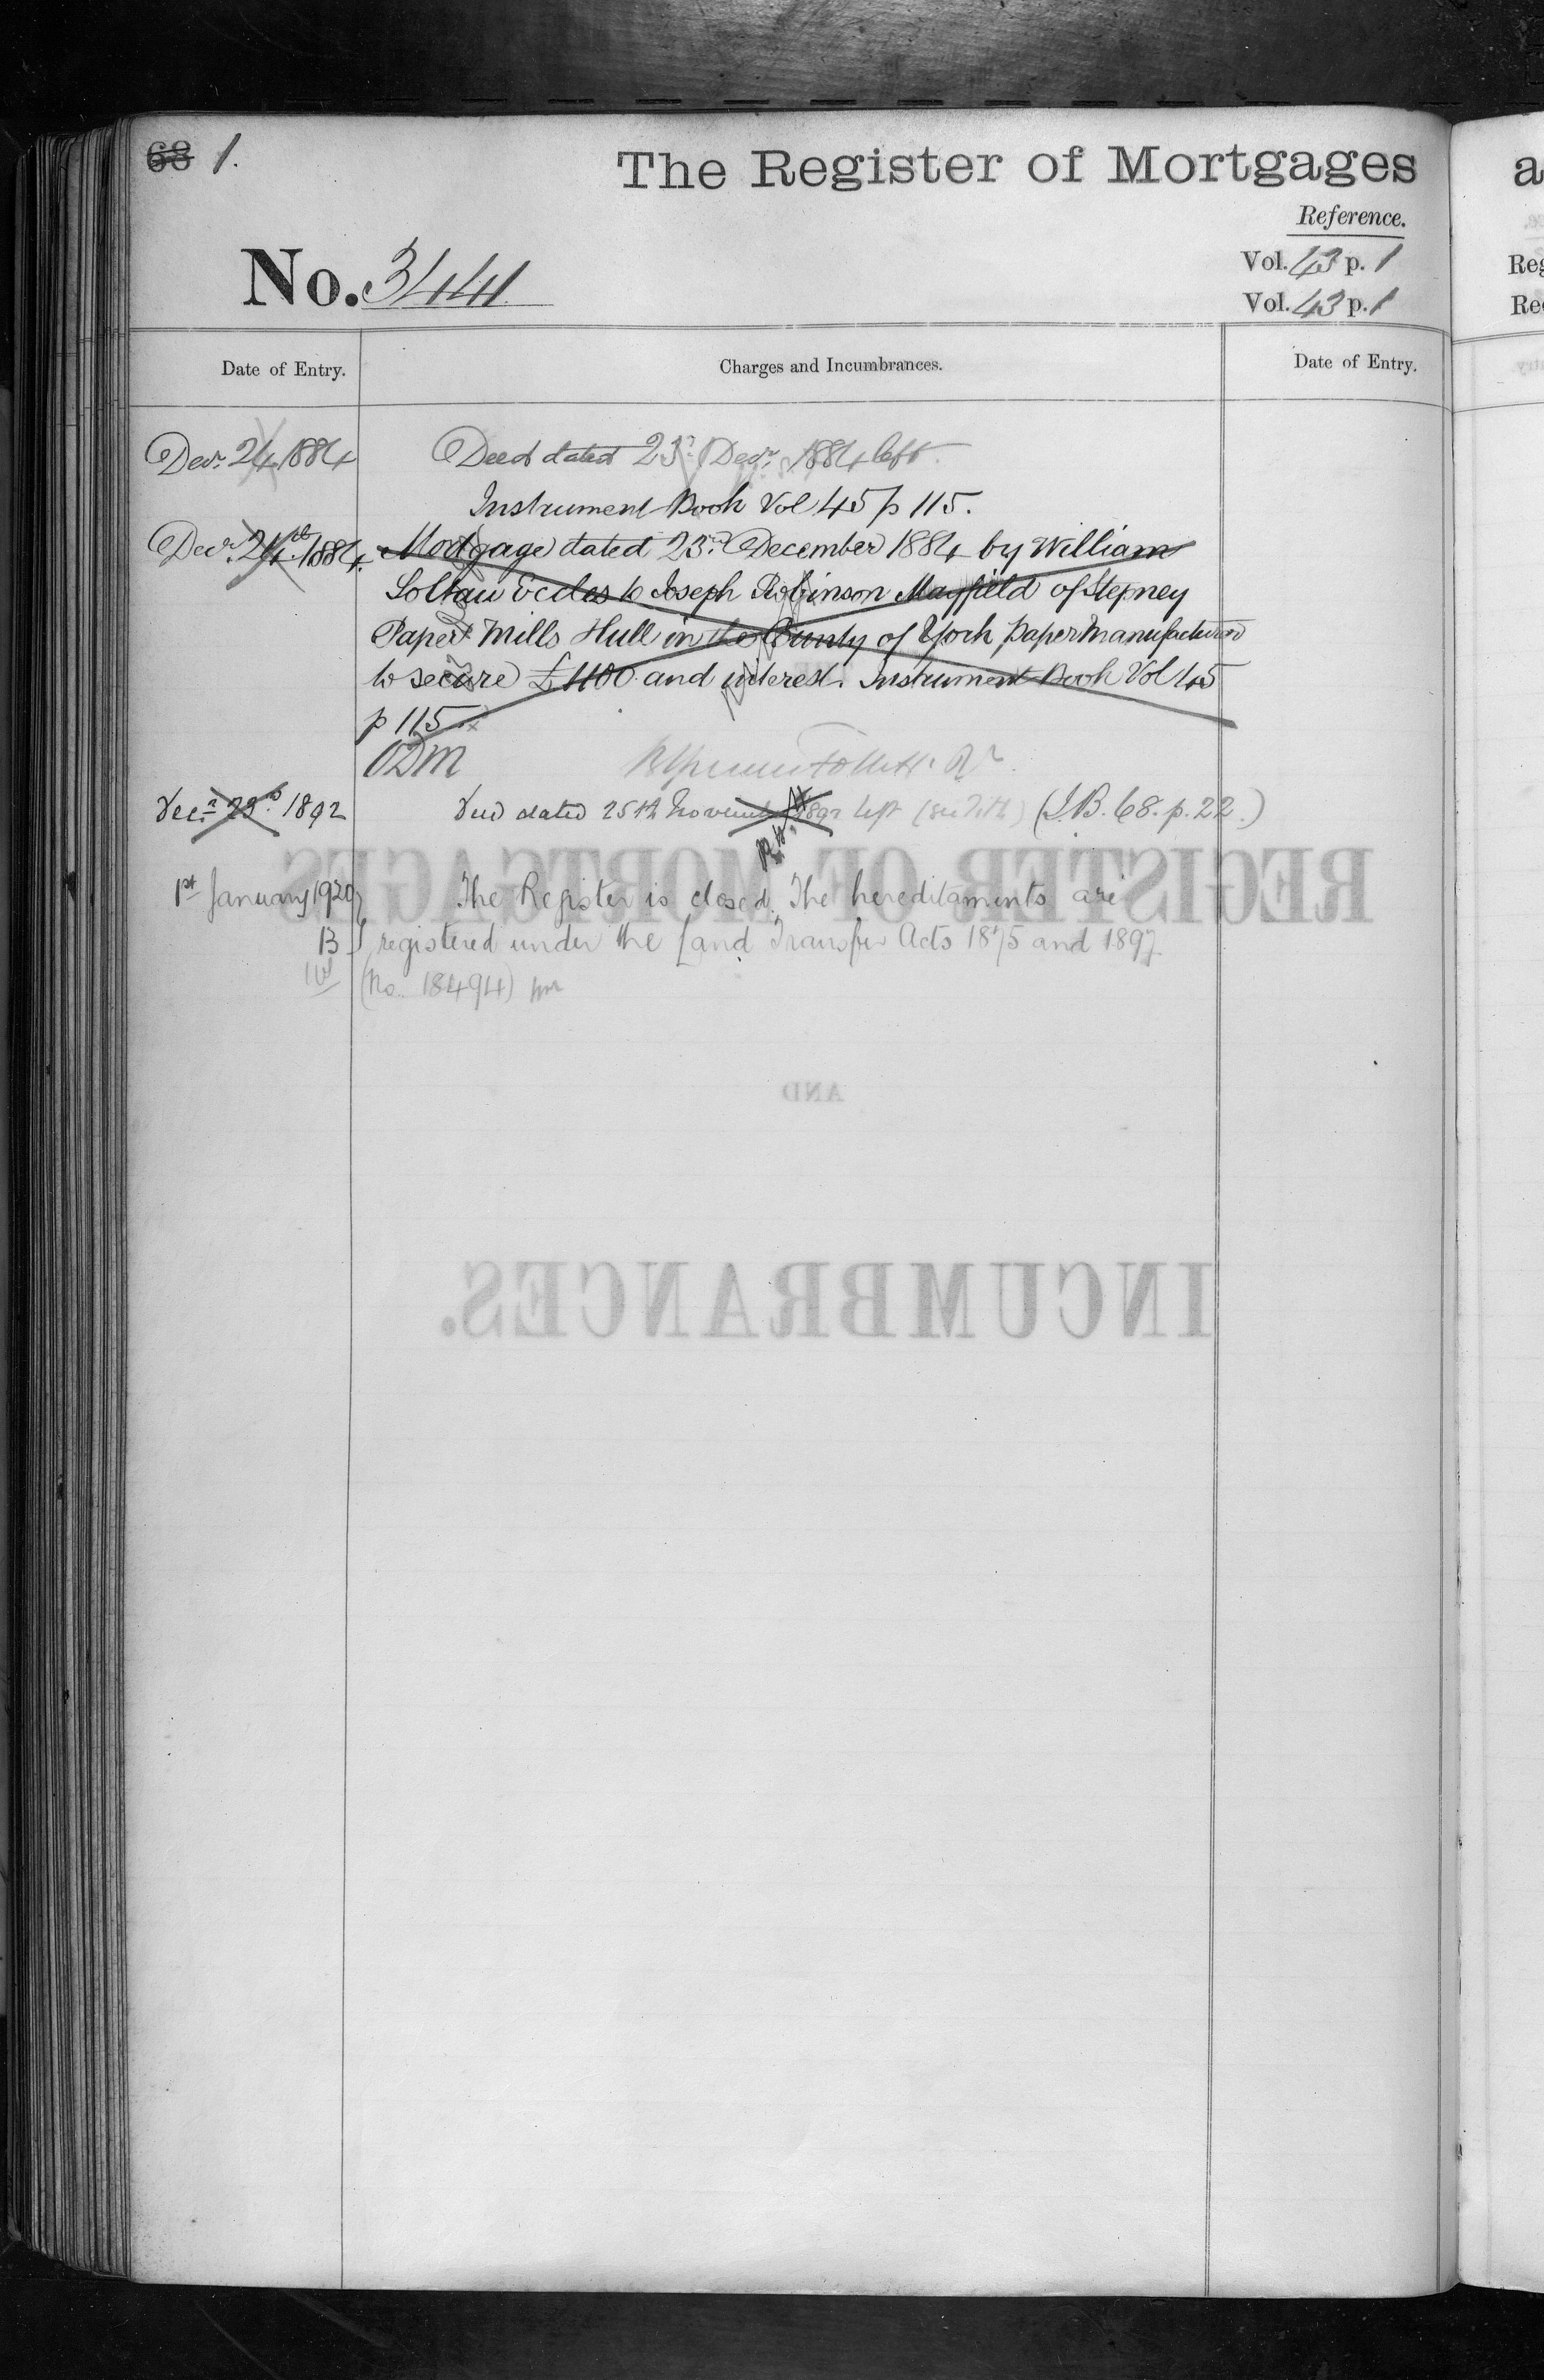 68 1.
The Register of Mortgages
Reference.
No. 3441
Vol. 43 p. 1
Vol. 43 p. 1
Date of Entry.
Charges and Incumbrances.
Date of Entry.
Decr. 24 1884
Deed dated 23rd Decr. 1884 left.
Instrument Book Vol 45 p 115.
Decr. 24th 1884.
Mortgage dated 23rd December 1884 by William
Soltau Eccles to Joseph Robinson Mayfield of Stepney
Paper Mills Hull in the County of York Paper Manufacturer
to secure £1100 and interest. Instrument Book Vol 45
p 115
ODM
Decr. 23rd 1892
Deed dated 25th November 1892 left (see Title) (I.B. 68. p. 22.)
1st January 1920
The Register is closed. The hereditaments are
B
registered under the Land Transfer Acts 1875 and 1897
(No. 18494)
REGISTER OF MORTGAGES
AND
INCUMBRANCES.